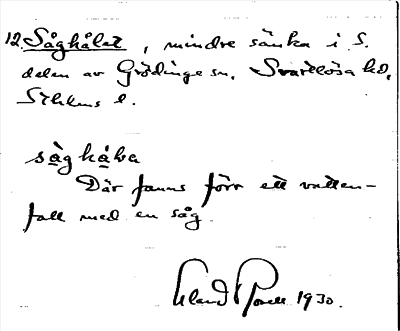 12. Såghålet, mindre sänka i S.
delen av Grödinge sn, Svartlösa hd,
Sthlms l.
såghåla
Där fanns förr ett vatten-
fall med en såg.
Erland 1930.